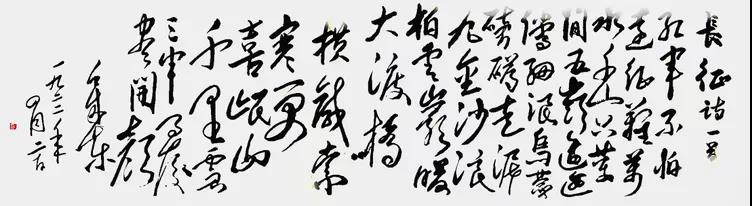 長征詩一首
紅軍不怕
遠征難萬
水千山只等
閒五嶺逶迤
騰細浪烏蒙
磅礴走泥
丸金沙浪
拍雲崖暖
大渡橋
橫鐵索
寒更
喜岷山
千里雪
三軍過後
盡開顏
毛澤東
一九六二年
四月廿日